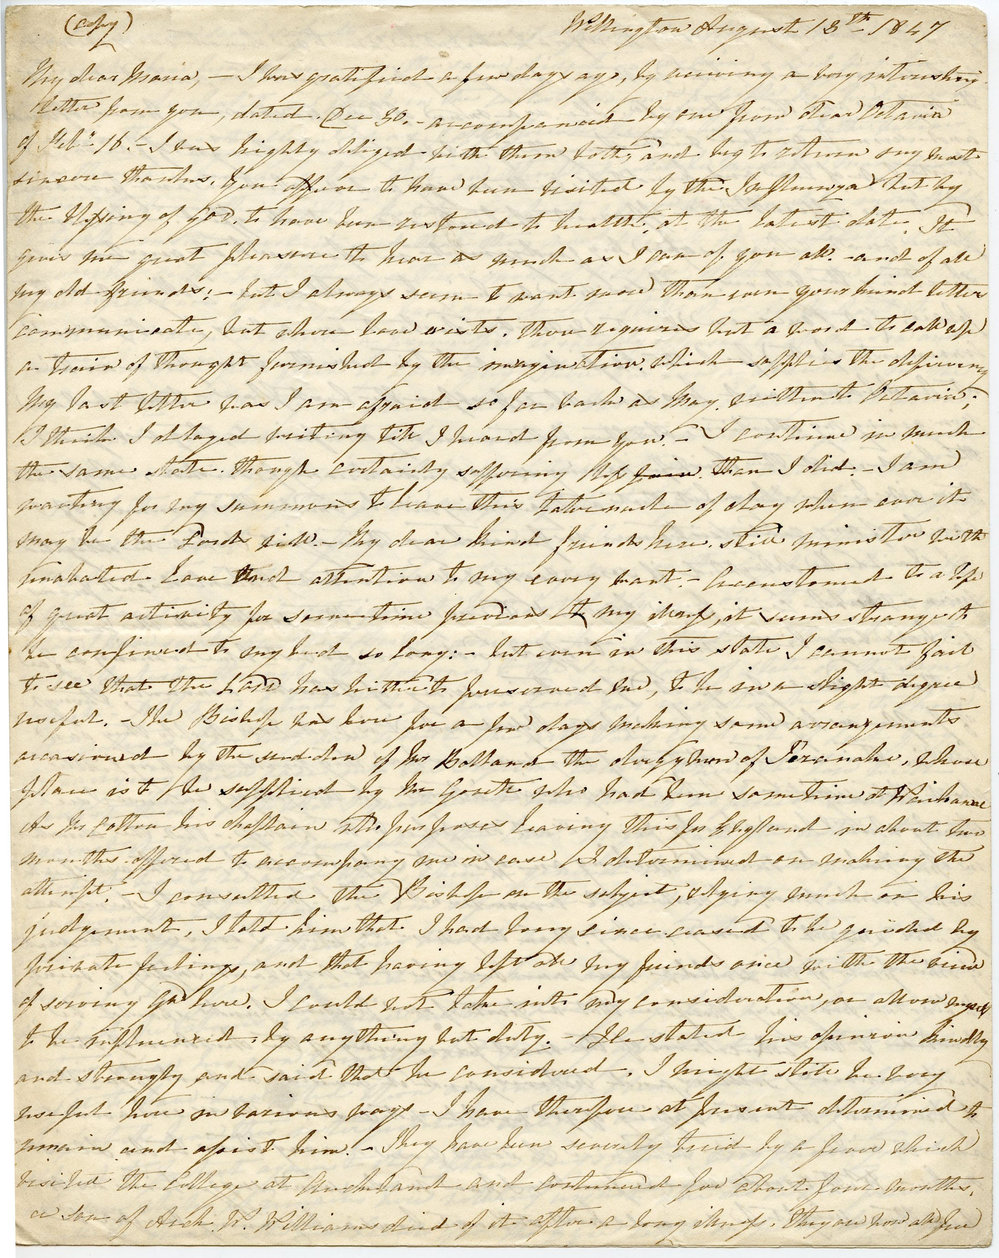 (Copy) Wellington August 18th 1847
My dear Maria, - I was gratified a few days ago, by receiving a very interesting
letter from you, dated Dec 30. - accompanied by one from dear Octavia
of Feby 16 - I was highly obliged with them both, and beg to return my most
sincere thanks. You appear to have been visited by the Influenza but by
the blessing of God. to have been restored to health, at the latest date. It
gives me great pleasure to hear as much as I can of you all - and of all
my old friends; - but I always seem to want more than even your kind letters
communicate, but where love exists. there requires but a word to call up
a train of thought furnished by the imagination. which supplies the deficiency
My last letter was I am afraid so far back as May, written to Octavia;
I think I delayed writing till I heard from you. - I continue in much
the same state. though certainly suffering less than I did. - I am
waiting for my summons to leave this tabernacle of clay when ever it
may be the Lords will. - My dear kind friends here. still minister with
unabated Love and attention to my every want. - Accustomed to a life
of great activity for some time previous to my illness, it seems strange to
be confined to my bed so long: - but even in this state I cannot fail
to see that the Lord has hitherto preserved me, to be in a slight degree
useful. - The Bishop was here for a few days making some arrangements
occasioned by the sudden of Mr Bolland the clergyman of Taranaki, whose
place is to be supplied by Mr Govett who had been some time at Waikanae
As Mr Cotton his chaplain purposes leaving this for England in about two
months. offered to accompany me in case I determined on making the
attempt. - I consulted the Bishop on the subject, relying much on his
judgement, I told him that I had long since ceased to be guided by
private feelings, and that having left all my friends once with the view
of serving God here. I could not take into my consideration, or allow myself
to be influenced by anything but duty. - He stated his opinion kindly
and strongly and said that he considered. I might still be very
useful here in various ways - I have therefore at present determined to
remain and assist him. - They have been severely tried by a fever which
visited the College at Auckland and continued for about four months.
a son of Arch W. Williams died of it after a long illness. they are now all free